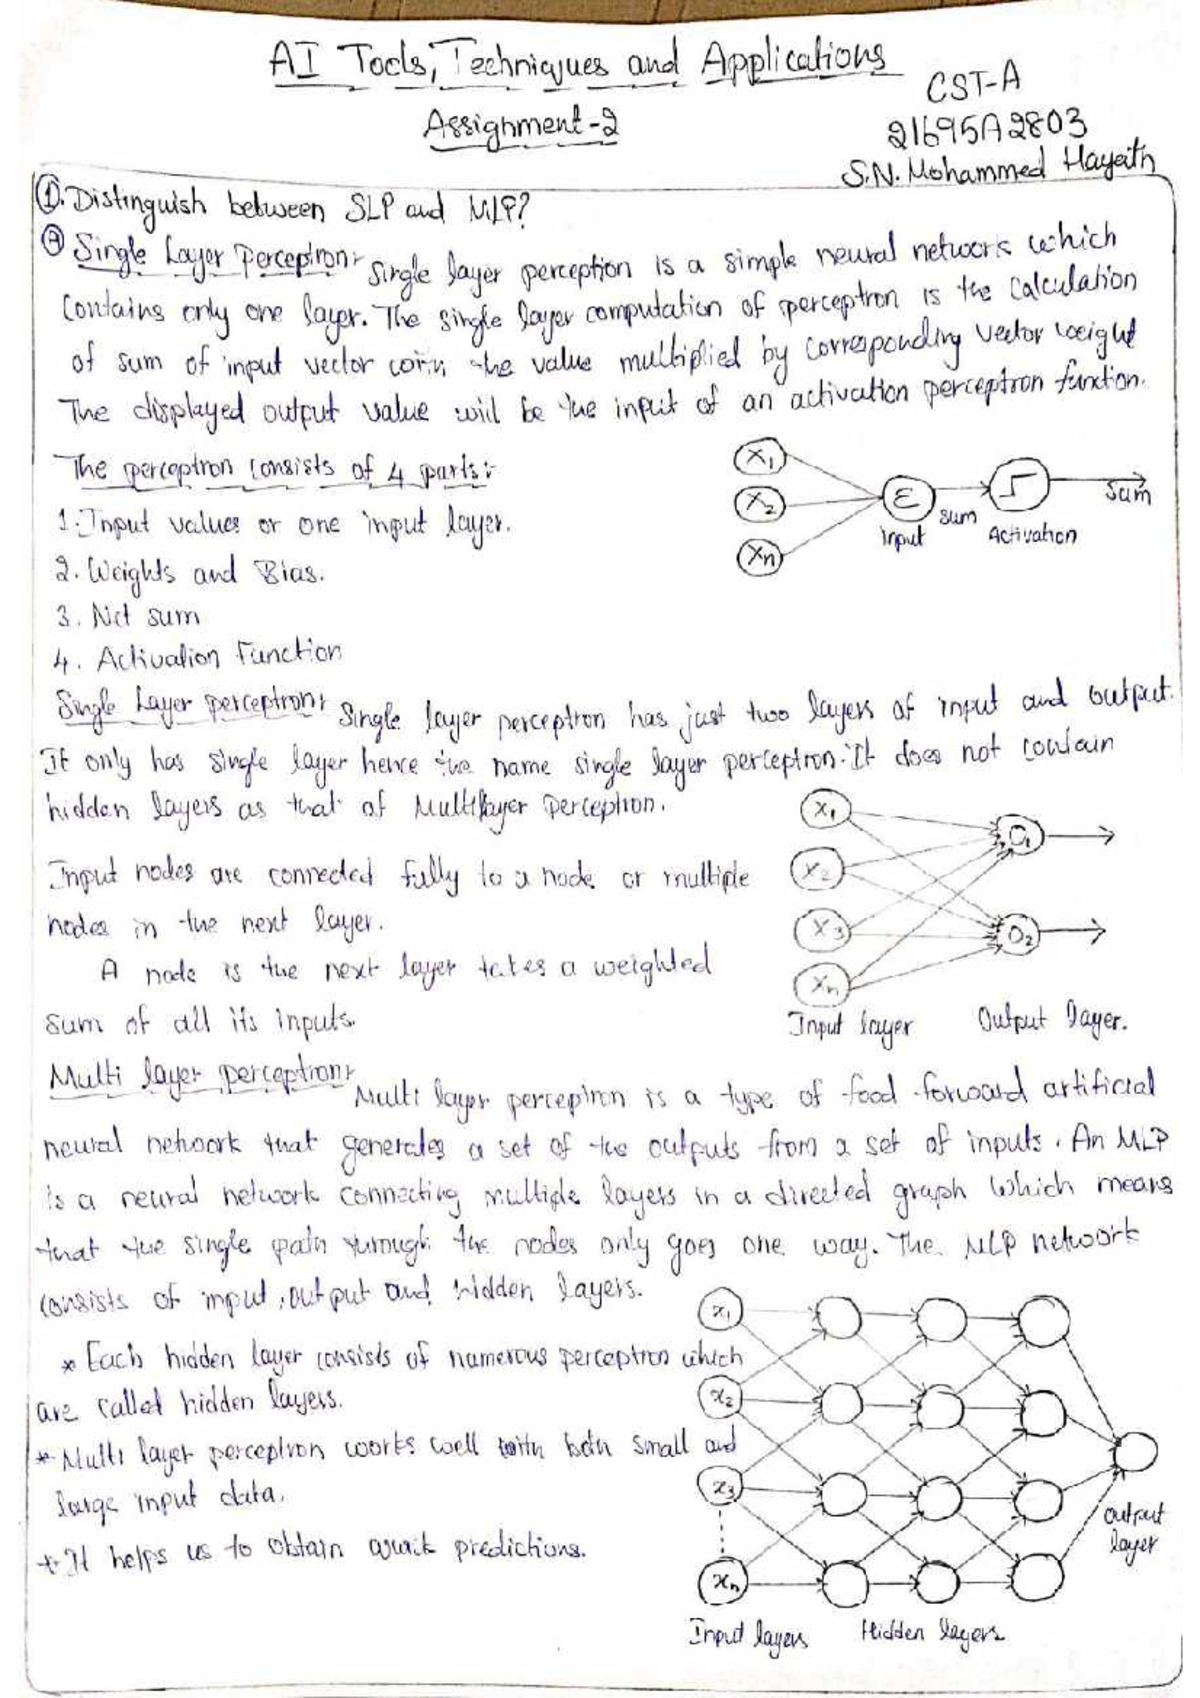 AI Tools, Techniques and Applications
Assignment-2
CST-A
21695A2803
S.N. Mohammed Hayaith
①. Distinguish between SLP and MLP?
Ⓐ Single Layer Perceptron:- Single layer perception is a simple neural network which
contains only one layer. The single layer computation of perceptron is the calculation
of sum of input vector with the value multiplied by corresponding vector weight
The displayed output value will be the input of an activation perceptron function.
The perceptron consists of 4 parts:-
1. Input values or one input layer.
2. Weights and Bias.
3. Net sum
4. Activation Function
X1
X2
Xn
Σ
input
sum
Activation
Sum
Single Layer perceptron:- Single layer perceptron has just two layers of input and output.
It only has single layer hence the name single layer perceptron. It does not contain
hidden layers as that of Multilayer perceptron.
Input nodes are connected fully to a node or multiple
nodes in the next layer.
A node is the next layer takes a weighted
sum of all its inputs.
X1
X2
X3
Xn
O1
O2
Input layer
Output layer.
Multi layer perceptron:- Multi layer perceptron is a type of food forward artificial
neural network that generates a set of the outputs from a set of inputs. An MLP
is a neural network connecting multiple layers in a directed graph which means
that the single path through the nodes only goes one way. The MLP network
consists of input, output and hidden layers.
* Each hidden layer consists of numerous perceptron which
are called hidden layers.
* Multi layer perceptron works well with both small and
large input data.
* It helps us to obtain predictions.
x1
x2
x3
xn
output
layer
Input layers
Hidden layers